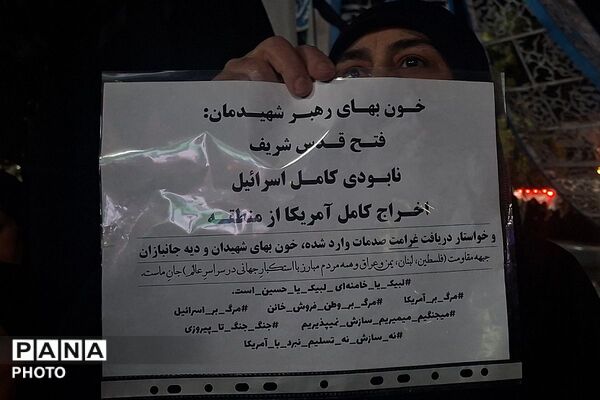 خون بهای رهبر شهیدمان:
فتح قدس شریف
نابودی کامل اسرائیل
اخراج کامل آمریکا از منطقه
و خواستار دریافت غرامت صدمات وارد شده، خون بهای شهیدان و دیه جانبازان
جبهه مقاومت (فلسطین، لبنان، یمن و عراق و همه مردم مبارز با استکبار جهانی در سراسر عالم) جان ماست.
#لبیک_یا_خامنه‌ای_لبیک_یا_حسین_است.
#مرگ_بر_آمریکا #مرگ_بر_وطن_فروش_خائن #مرگ_بر_اسرائیل
#میجنگیم_میمیریم_سازش_نمیپذیریم #جنگ_جنگ_تا_پیروزی
#نه_سازش_نه_تسلیم_نبرد_با_آمریکا
PANA
PHOTO